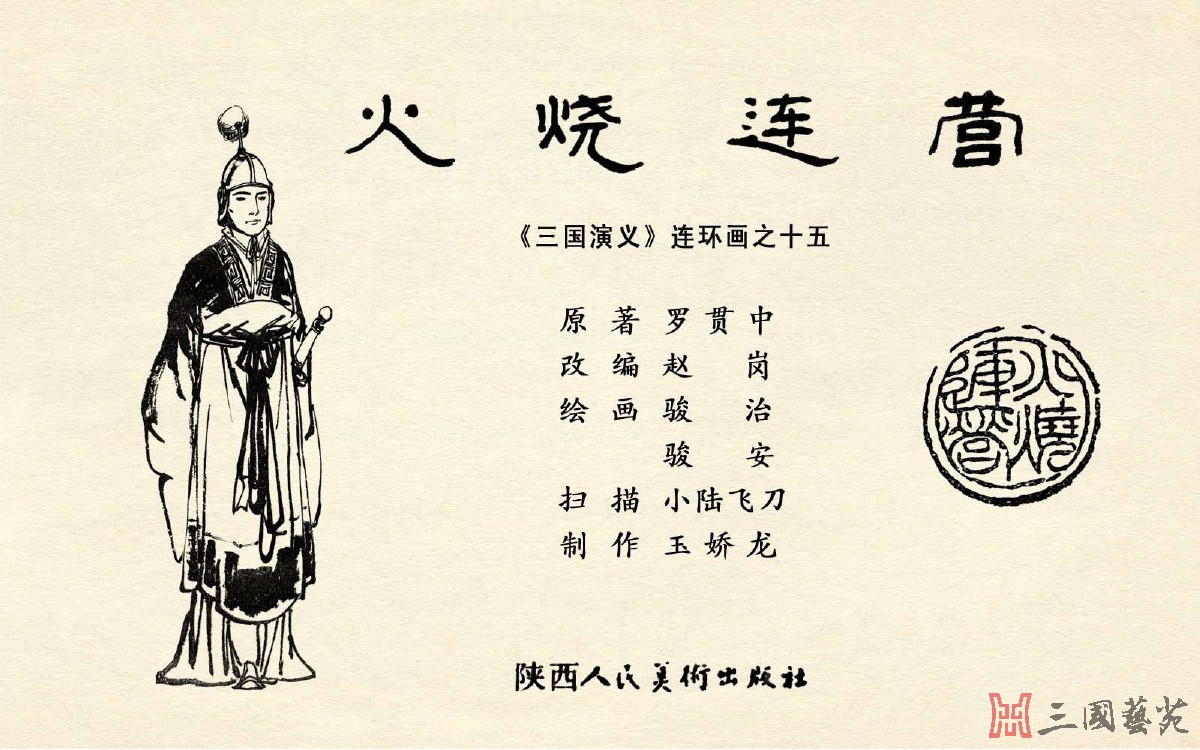 火烧连营
《三国演义》连环画之十五
原著 罗贯中
改编 赵岗
绘画 骏治
骏安
扫描 小陆飞刀
制作 玉娇龙
火燒連營
陕西人民美術出版社
三國藝苑